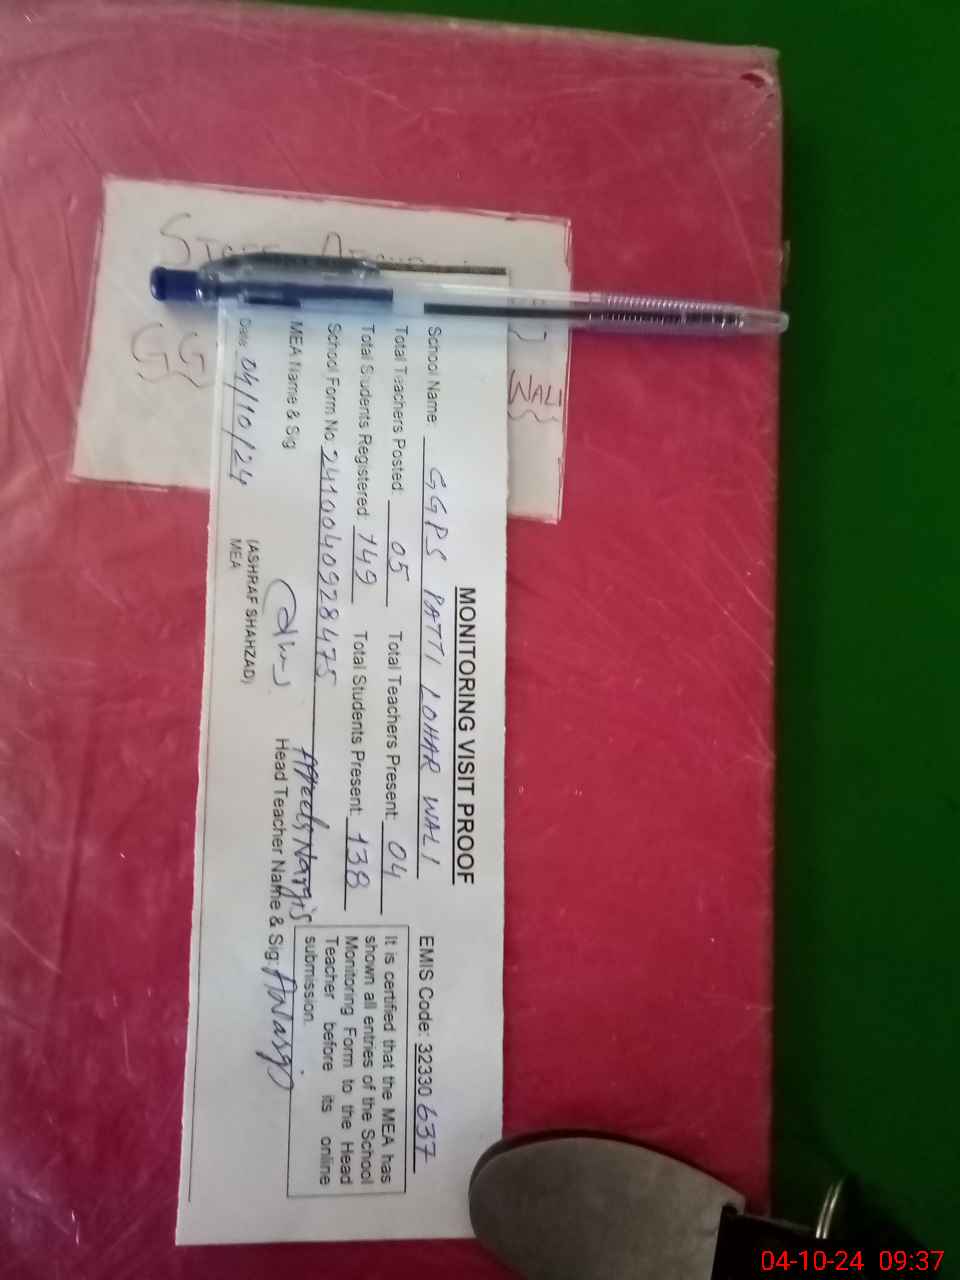 MONITORING VISIT PROOF
School Name: GGPS PATTI LOHAR WALI EMIS Code: 32330637
Total Teachers Posted: 05 Total Teachers Present: 04
Total Students Registered: 149 Total Students Present: 138
School Form No. 2410040928475
It is certified that the MEA has
shown all entries of the School
Monitoring Form to the Head
Teacher before its online
submission.
MEA Name & Sig
Nargis
Head Teacher Name & Sig:
(ASHRAF SHAHZAD)
MEA
Date: 04/10/24
WALI
04-10-24 09:37